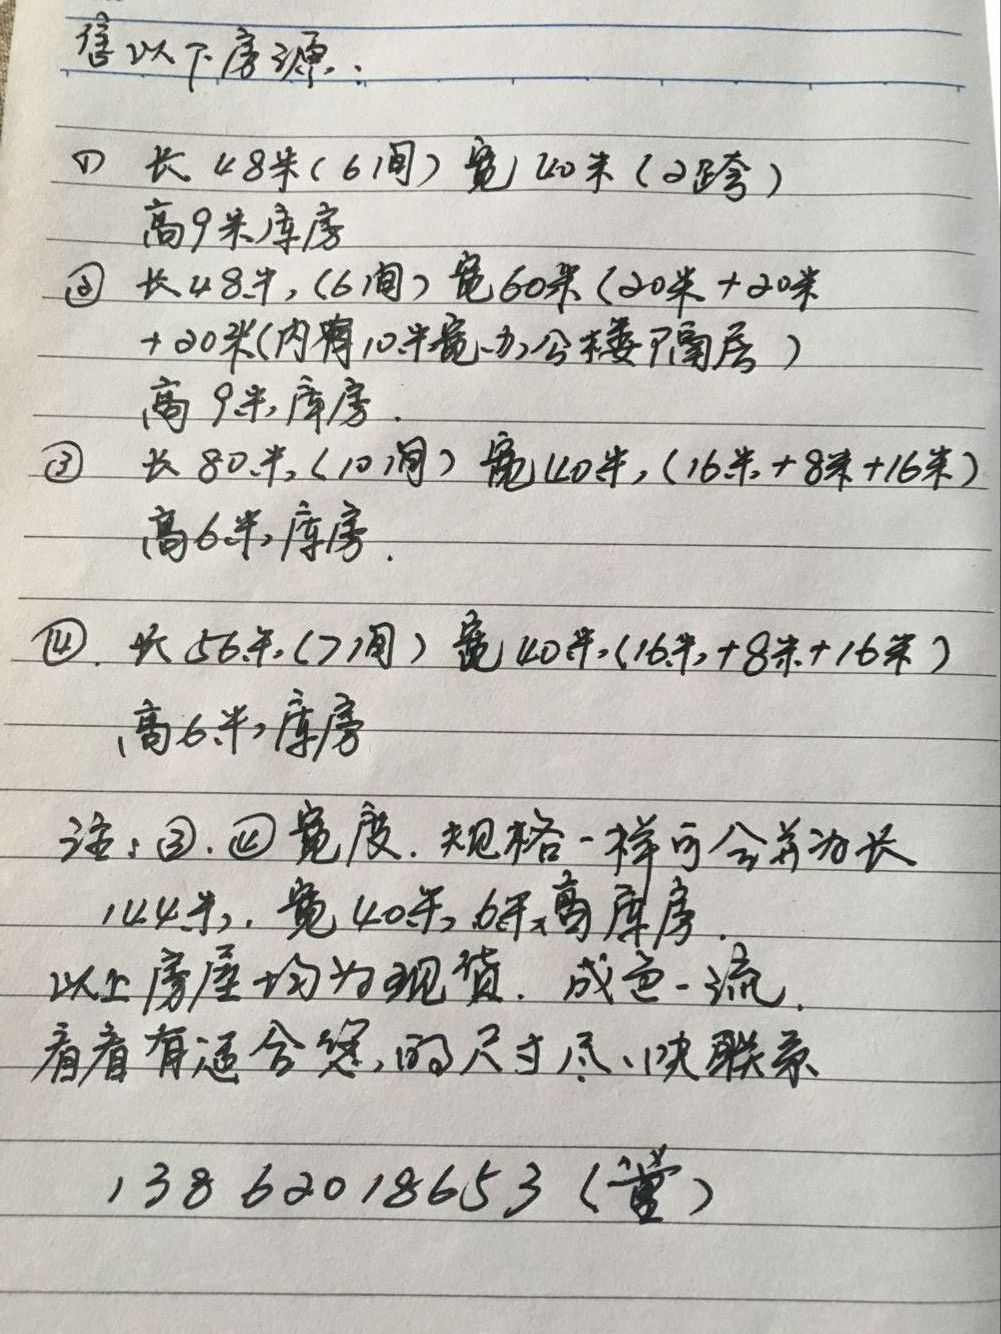 售以下房源:
① 长48米(6间)宽40米(2跨)
高9米库房
② 长48米,(6间)宽60米(20米+20米
+20米(内有10米宽办公楼隔层)
高9米库房.
③ 长80米,(10间)宽40米,(16米+8米+16米)
高6米库房.
④. 长56米,(7间)宽40米,(16米+8米+16米)
高6米库房
注:③.④宽度.规格一样可合并为长
144米,.宽40米,6米高库房.
以上房屋均为现货.成色一流.
看看有适合您的尺寸尽快联系
13862018653()